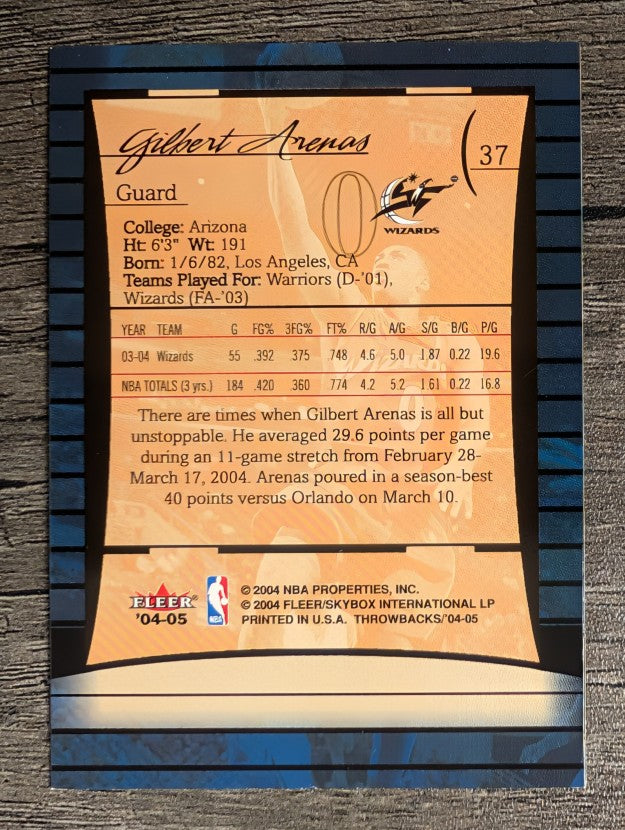 Gilbert Arenas
37
Guard
0
WIZARDS
College: Arizona
Ht: 6'3" Wt: 191
Born: 1/6/82, Los Angeles, CA
Teams Played For: Warriors (D-'01),
Wizards (FA-'03)
YEAR TEAM G FG% 3FG% FT% R/G A/G S/G B/G P/G
03-04 Wizards 55 .392 .375 .748 4.6 5.0 1.87 0.22 19.6
NBA TOTALS (3 yrs.) 184 .420 .360 .774 4.2 5.2 1.61 0.22 16.8
There are times when Gilbert Arenas is all but
unstoppable. He averaged 29.6 points per game
during an 11-game stretch from February 28-
March 17, 2004. Arenas poured in a season-best
40 points versus Orlando on March 10.
FLEER
'04-05
NBA
© 2004 NBA PROPERTIES, INC.
© 2004 FLEER/SKYBOX INTERNATIONAL LP
PRINTED IN U.S.A. THROWBACKS/'04-05